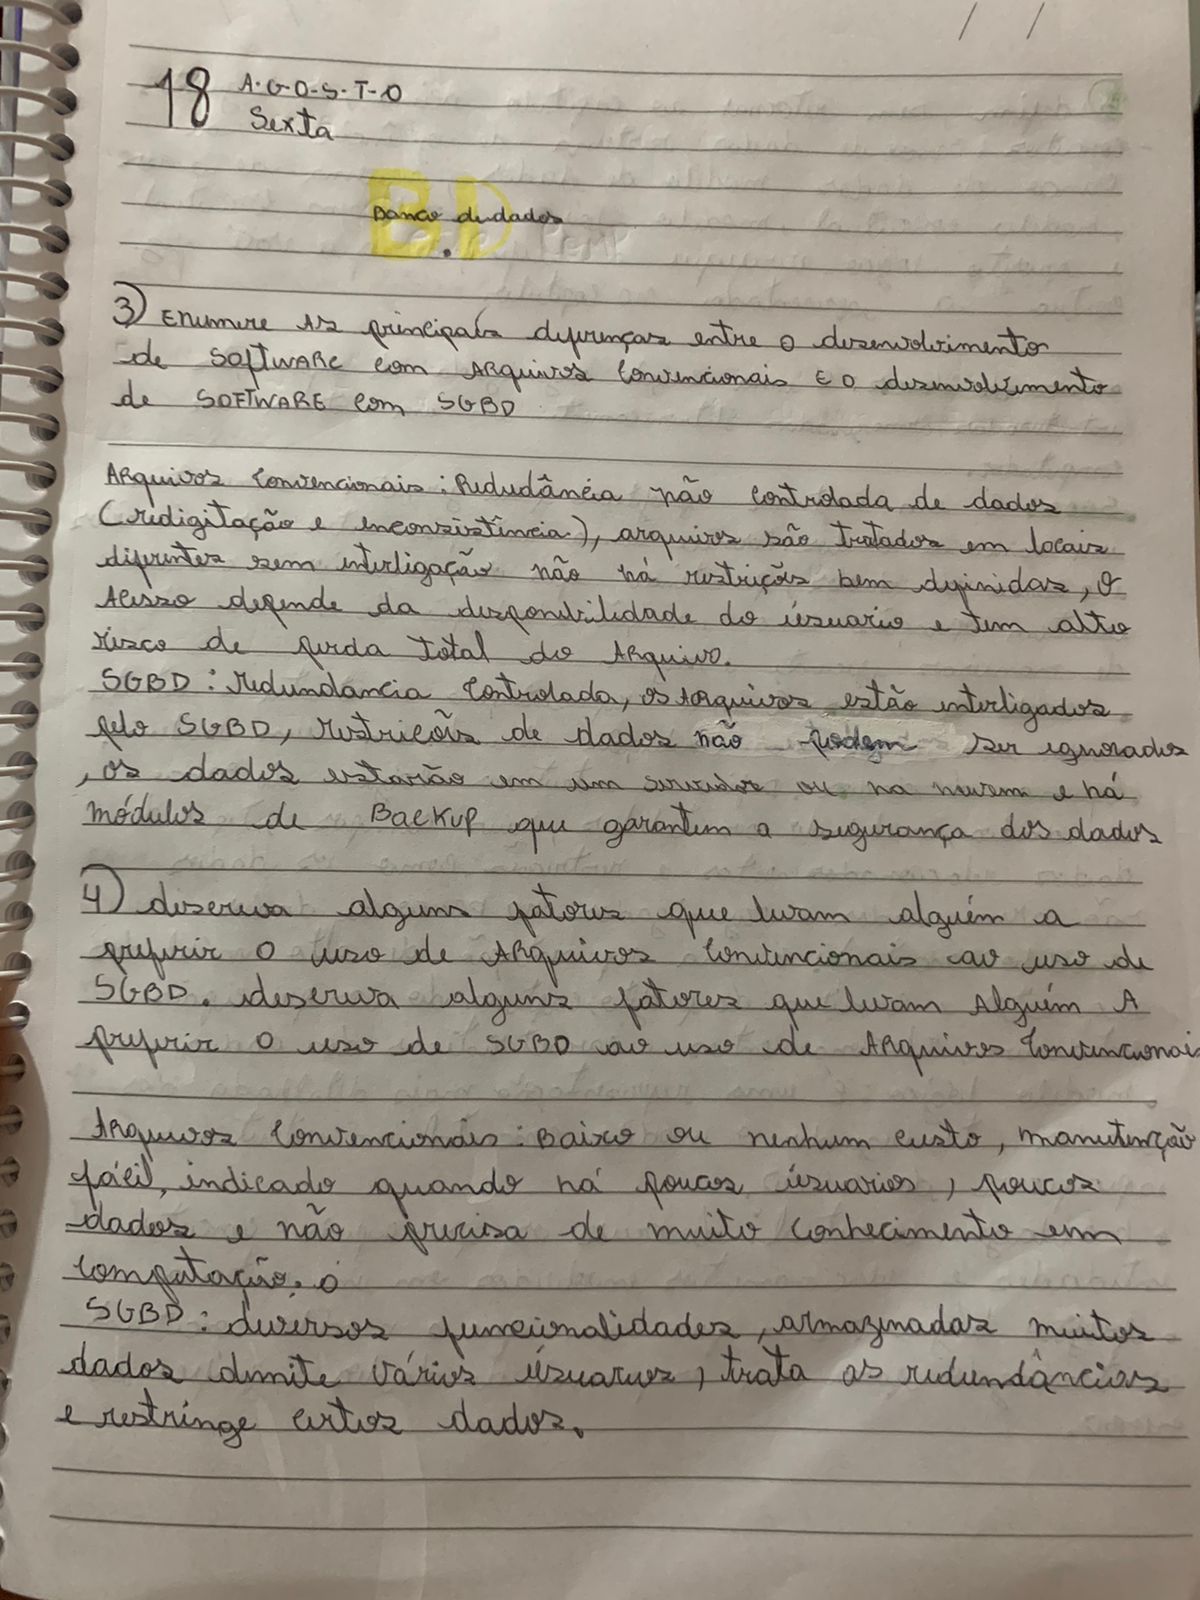 / /
18 A.G.O.S.T.O
Sexta
B.D
Banco de dados
3) Enumere As principais diferenças entre o desenvolvimento
de SOftWARE com ARquivos Convencionais E O desenvolvimento
de SOFTWARE com SGBD
ARquivos Convencionais: Redudância não controlada de dados
(redigitação e inconsistência), arquivos são tratados em locais
diferentes sem interligação não há restrições bem definidas, o
Acesso depende da disponibilidade do úsuario e tem alto
risco de perda total do ARquivo.
SGBD: redundancia Controlada, os ARquivos estão interligados
pelo SGBD, restricões de dados não podem ser ignorados
, os dados estarão em um servidor ou na nuvem e há
módulos de BackUp que garantem a segurança dos dados
4) descreva alguns fatores que levam alguém a
preferir o uso de ARquivos Convencionais ao uso de
SGBD. descreva alguns fatores que levam Alguém A
preferir o uso de SGBD ao uso de ARquivos Convencionais
ARquivos Convencionais: Baixo ou nenhum custo, manutenção
fácil, indicado quando há poucos úsuarios, poucos
dados e não precisa de muito conhecimento em
computação. o
SGBD: diversos funcionalidades, armazinadas muitos
dados dimite vários úsuarios, trata as redundâncias
e restringe certos dados.